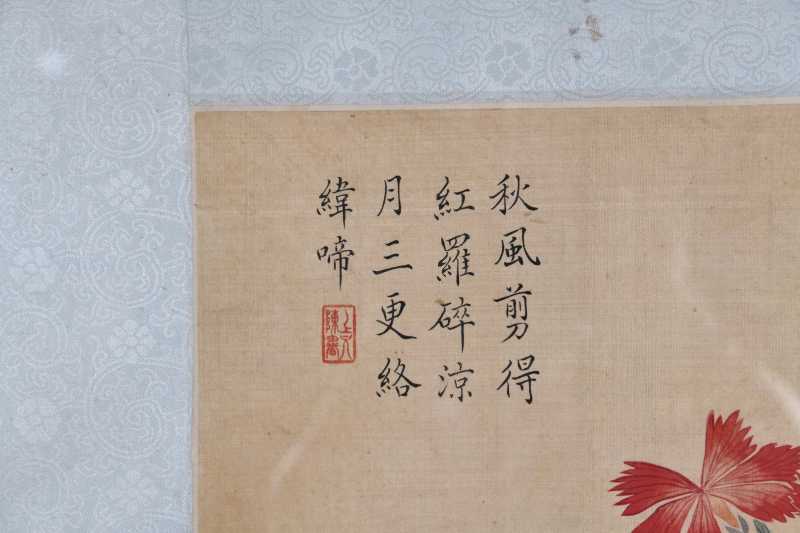 秋風剪得
紅羅碎涼
月三更絡
緯啼